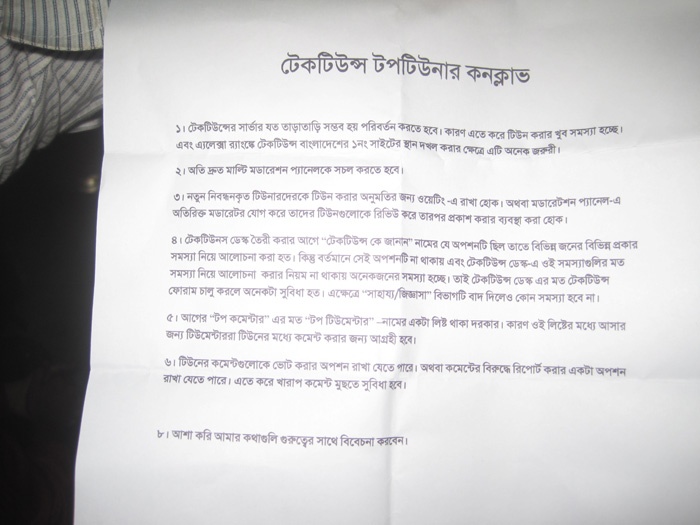 টেকটিউন্স টপটিউনার কনক্লাভ
১। টেকটিউন্সের সার্ভার যত তাড়াতাড়ি সম্ভব হয় পরিবর্তন করতে হবে। কারণ এতে করে টিউন করার খুব সমস্যা হচ্ছে।
এবং এ্যালেক্সা র‍্যাংঙ্কে টেকটিউন্স বাংলাদেশের ১নং সাইটের স্থান দখল করার ক্ষেত্রে এটি অনেক জরুরী।
২। অতি দ্রুত মাল্টি মডারেশন প্যানেলকে সচল করতে হবে।
৩। নতুন নিবন্ধনকৃত টিউনারদেরকে টিউন করার অনুমতির জন্য ওয়েটিং -এ রাখা হোক। অথবা মডারেটশন প্যানেল-এ
অতিরিক্ত মডারেটর যোগ করে তাদের টিউনগুলোকে রিভিউ করে তারপর প্রকাশ করার ব্যবস্থা করা হোক।
৪। টেকটিউনস ডেস্ক তৈরী করার আগে “টেকটিউন্স কে জানান” নামের যে অপশনটি ছিল তাতে বিভিন্ন জনের বিভিন্ন প্রকার
সমস্যা নিয়ে আলোচনা করা হত। কিন্তু বর্তমানে সেই অপশনটি না থাকায় এবং টেকটিউন্স ডেস্ক-এ ওই সমস্যাগুলির মত
সমস্যা নিয়ে আলোচনা করার নিয়ম না থাকায় অনেকজনের সমস্যা হচ্ছে। তাই টেকটিউন্স ডেস্ক এর মত টেকটিউন্স
ফোরাম চালু করলে অনেকটা সুবিধা হত। এক্ষেত্রে “সাহায্য/জিজ্ঞাসা” বিভাগটি বাদ দিলেও কোন সমস্যা হবে না।
৫। আগের “টপ কমেন্টার” এর মত “টপ টিউমেন্টার” –নামের একটা লিষ্ট থাকা দরকার। কারণ ওই লিষ্টের মধ্যে আসার
জন্য টিউমেন্টাররা টিউনের মধ্যে কমেন্ট করার জন্য আগ্রহী হবে।
৬। টিউনের কমেন্টগুলোকে ভোট করার অপশন রাখা যেতে পারে। অথবা কমেন্টের বিরুদ্ধে রিপোর্ট করার একটা অপশন
রাখা যেতে পারে। এতে করে খারাপ কমেন্ট মুছতে সুবিধা হবে।
৮। আশা করি আমার কথাগুলি গুরুত্বের সাথে বিবেচনা করবেন।